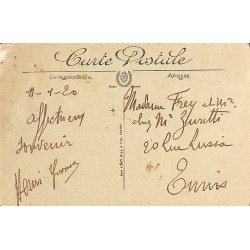 Carte Postale
Correspondance
Adresse
11-1-20
affectueux
souvenir
Henri
Madame Frey et Mr
chez Mr Zuretti
20 Rue Russia
Tunis